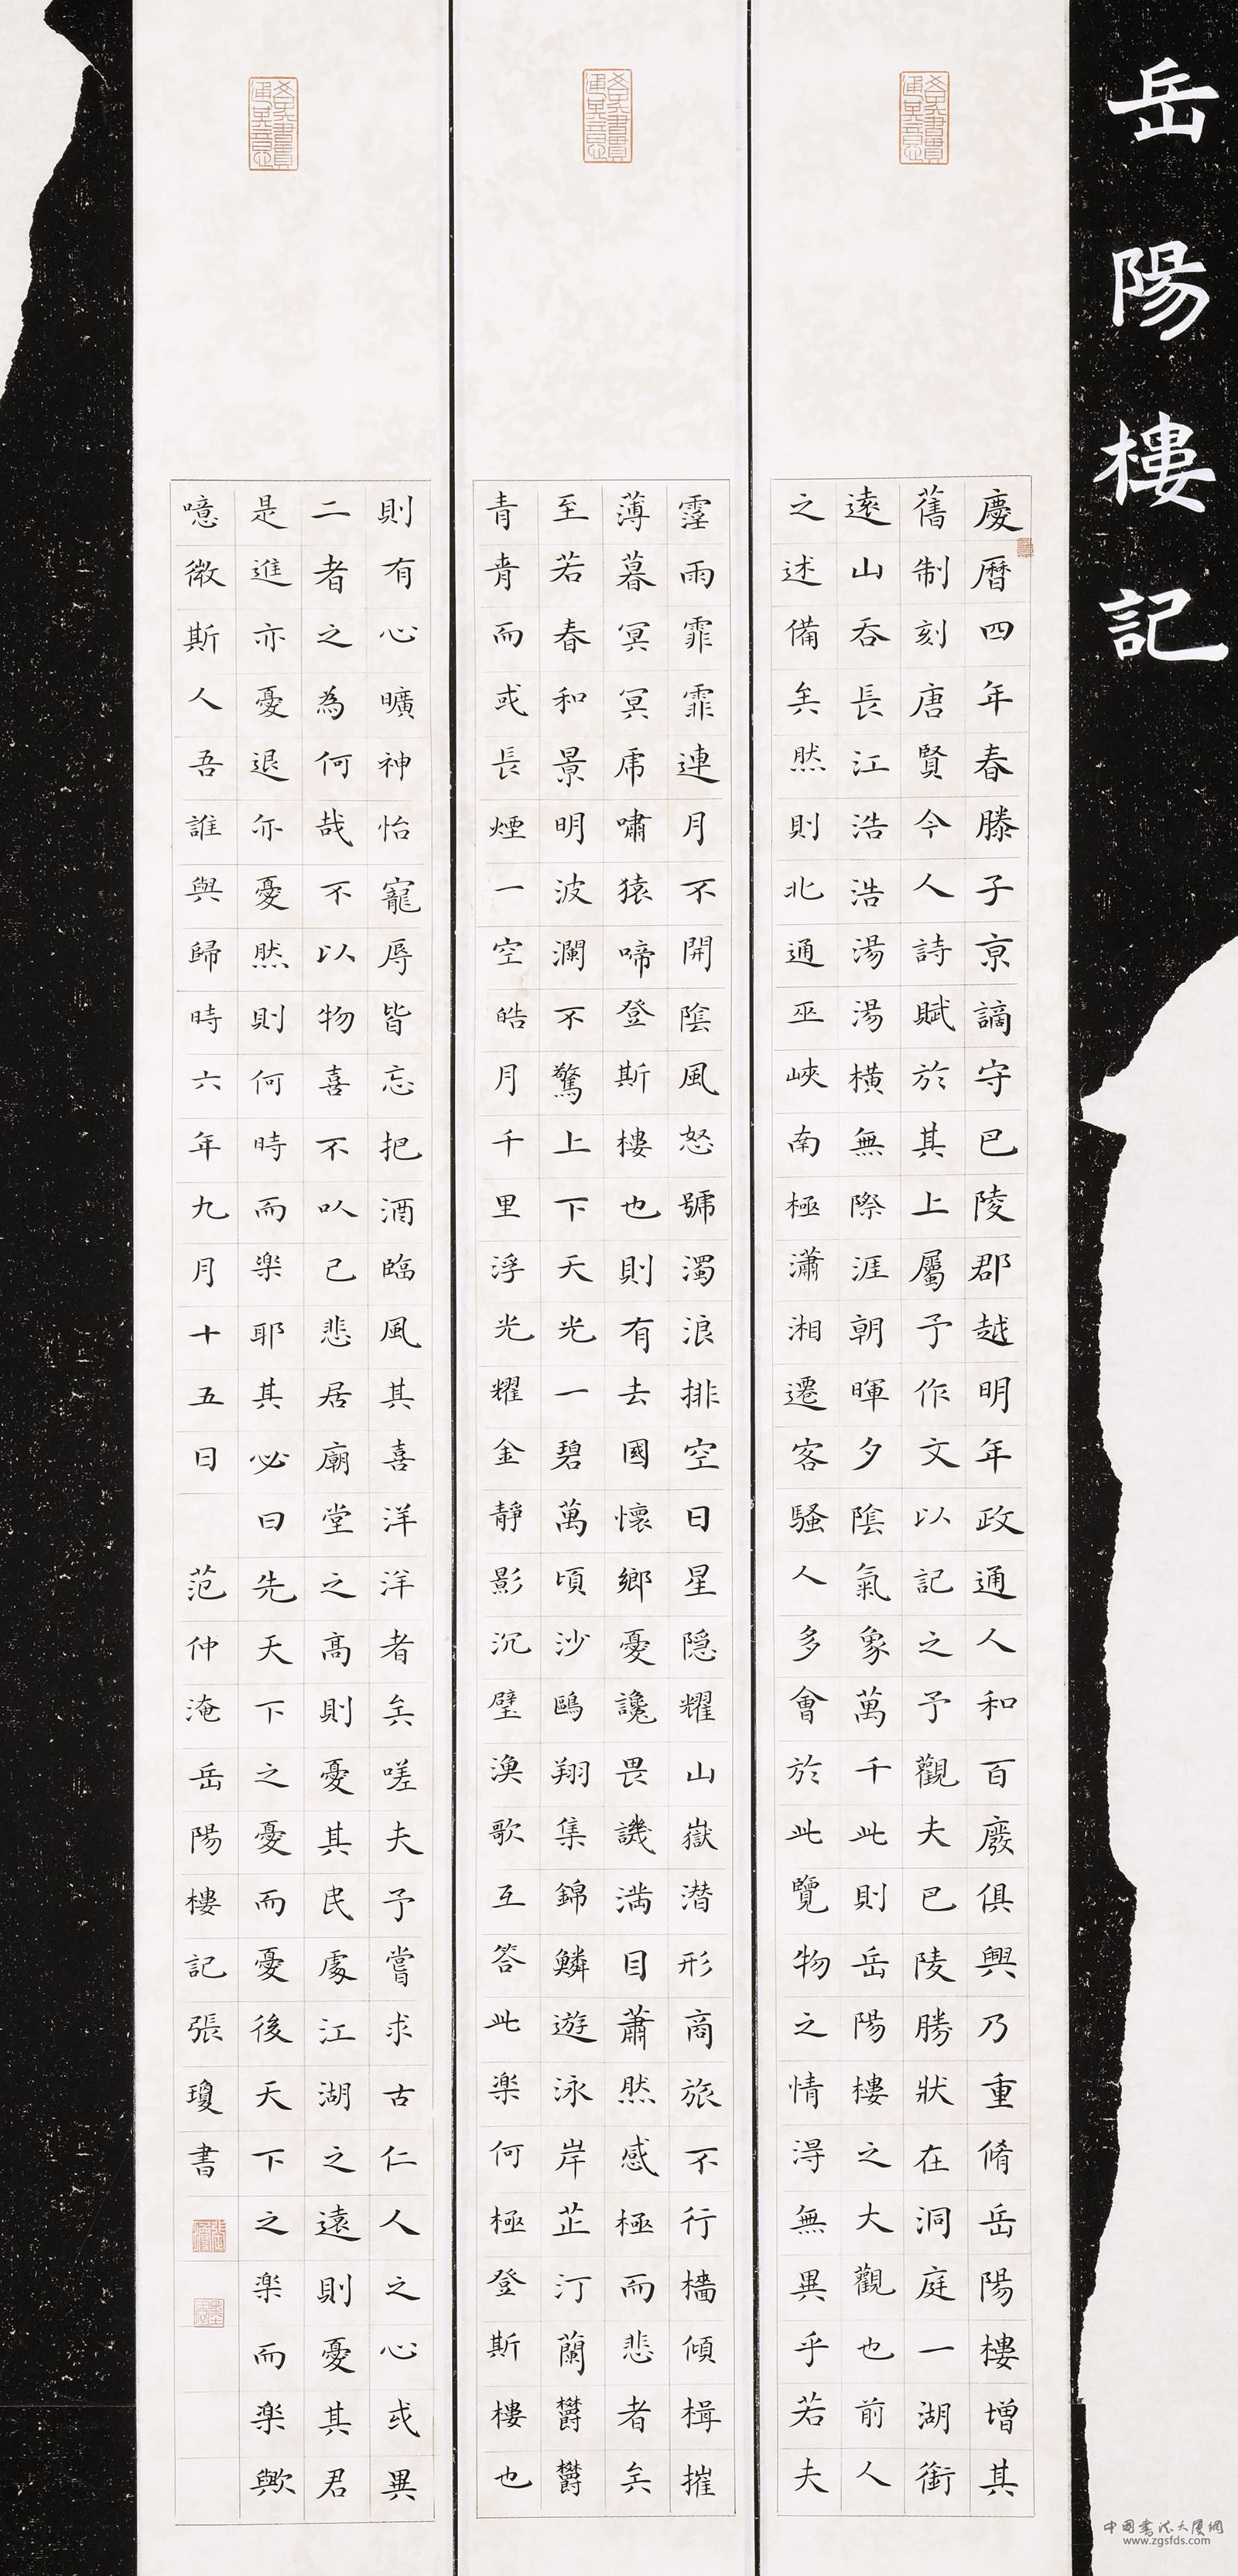 岳陽樓記
慶曆四年春滕子京謫守巴陵郡越明年政通人和百廢俱興乃重脩岳陽樓增其
舊制刻唐賢今人詩賦於其上屬予作文以記之予觀夫巴陵勝狀在洞庭一湖銜
遠山吞長江浩浩湯湯橫無際涯朝暉夕陰氣象萬千此則岳陽樓之大觀也前人
之述備矣然則北通巫峽南極瀟湘遷客騷人多會於此覽物之情得無異乎若夫
霪雨霏霏連月不開陰風怒號濁浪排空日星隱耀山嶽潛形商旅不行檣傾楫摧
薄暮冥冥虎嘯猿啼登斯樓也則有去國懷鄉憂讒畏譏滿目蕭然感極而悲者矣
至若春和景明波瀾不驚上下天光一碧萬頃沙鷗翔集錦鱗遊泳岸芷汀蘭欝欝
青青而或長煙一空皓月千里浮光耀金靜影沉璧漁歌互答此楽何極登斯樓也
則有心曠神怡寵辱皆忘把酒臨風其喜洋洋者矣嗟夫予嘗求古仁人之心或異
二者之為何哉不以物喜不以己悲居廟堂之高則憂其民處江湖之遠則憂其君
是進亦憂退亦憂然則何時而楽耶其必曰先天下之憂而憂後天下之楽而楽歟
噫微斯人吾誰與歸時六年九月十五日 范仲淹岳陽樓記張瓊書
中國書法大廈網
www.zgsfds.com